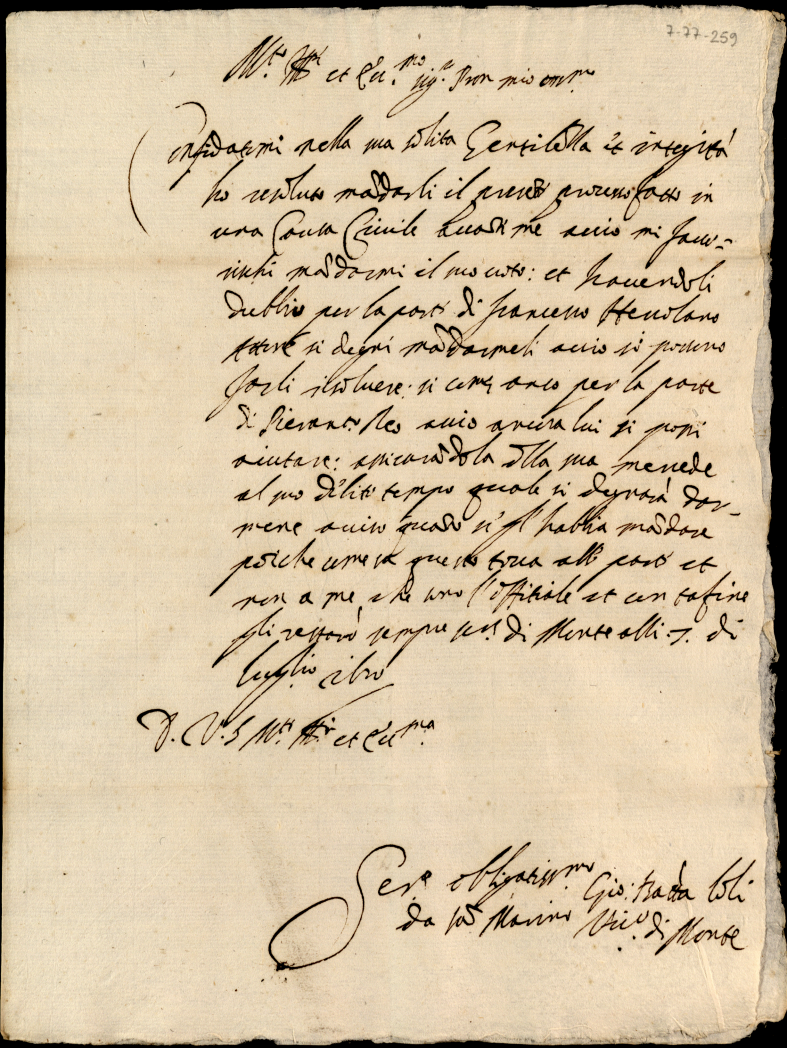 7-77-259
M.to Ill.re et Ecc.mo sig.r Pron mio oss.mo
Confidatomi nella sua solita Gentilezza et integrità
ho resoluto mandarli il presente processo fatto in
una Causa Civile avanti me acciò mi favo=
rischi mandarmi il suo voto: et havendoli
dubbio per la parte di Francesco
si degni mandarmeli acciò si possono
farli risolvere: si come anco per la parte
di Pierant.o acciò ancora lui si possi
aiutare: assicurandola della sua mercede
al suo debito tempo quale si degnarà dar-
mene aviso quando si gl'habbia mandare
poiche come sa questo tocca alle parti et
non a me, che sono l'offitiale et con tal fine
gli restarò sempre ser.re di Monte alli .7. di
luglio
D. V. S. M.to Ill.re et Ecc.ma
Ser.re obligatiss.mo Gio: Batta
da san Marino Vic.o di Monte